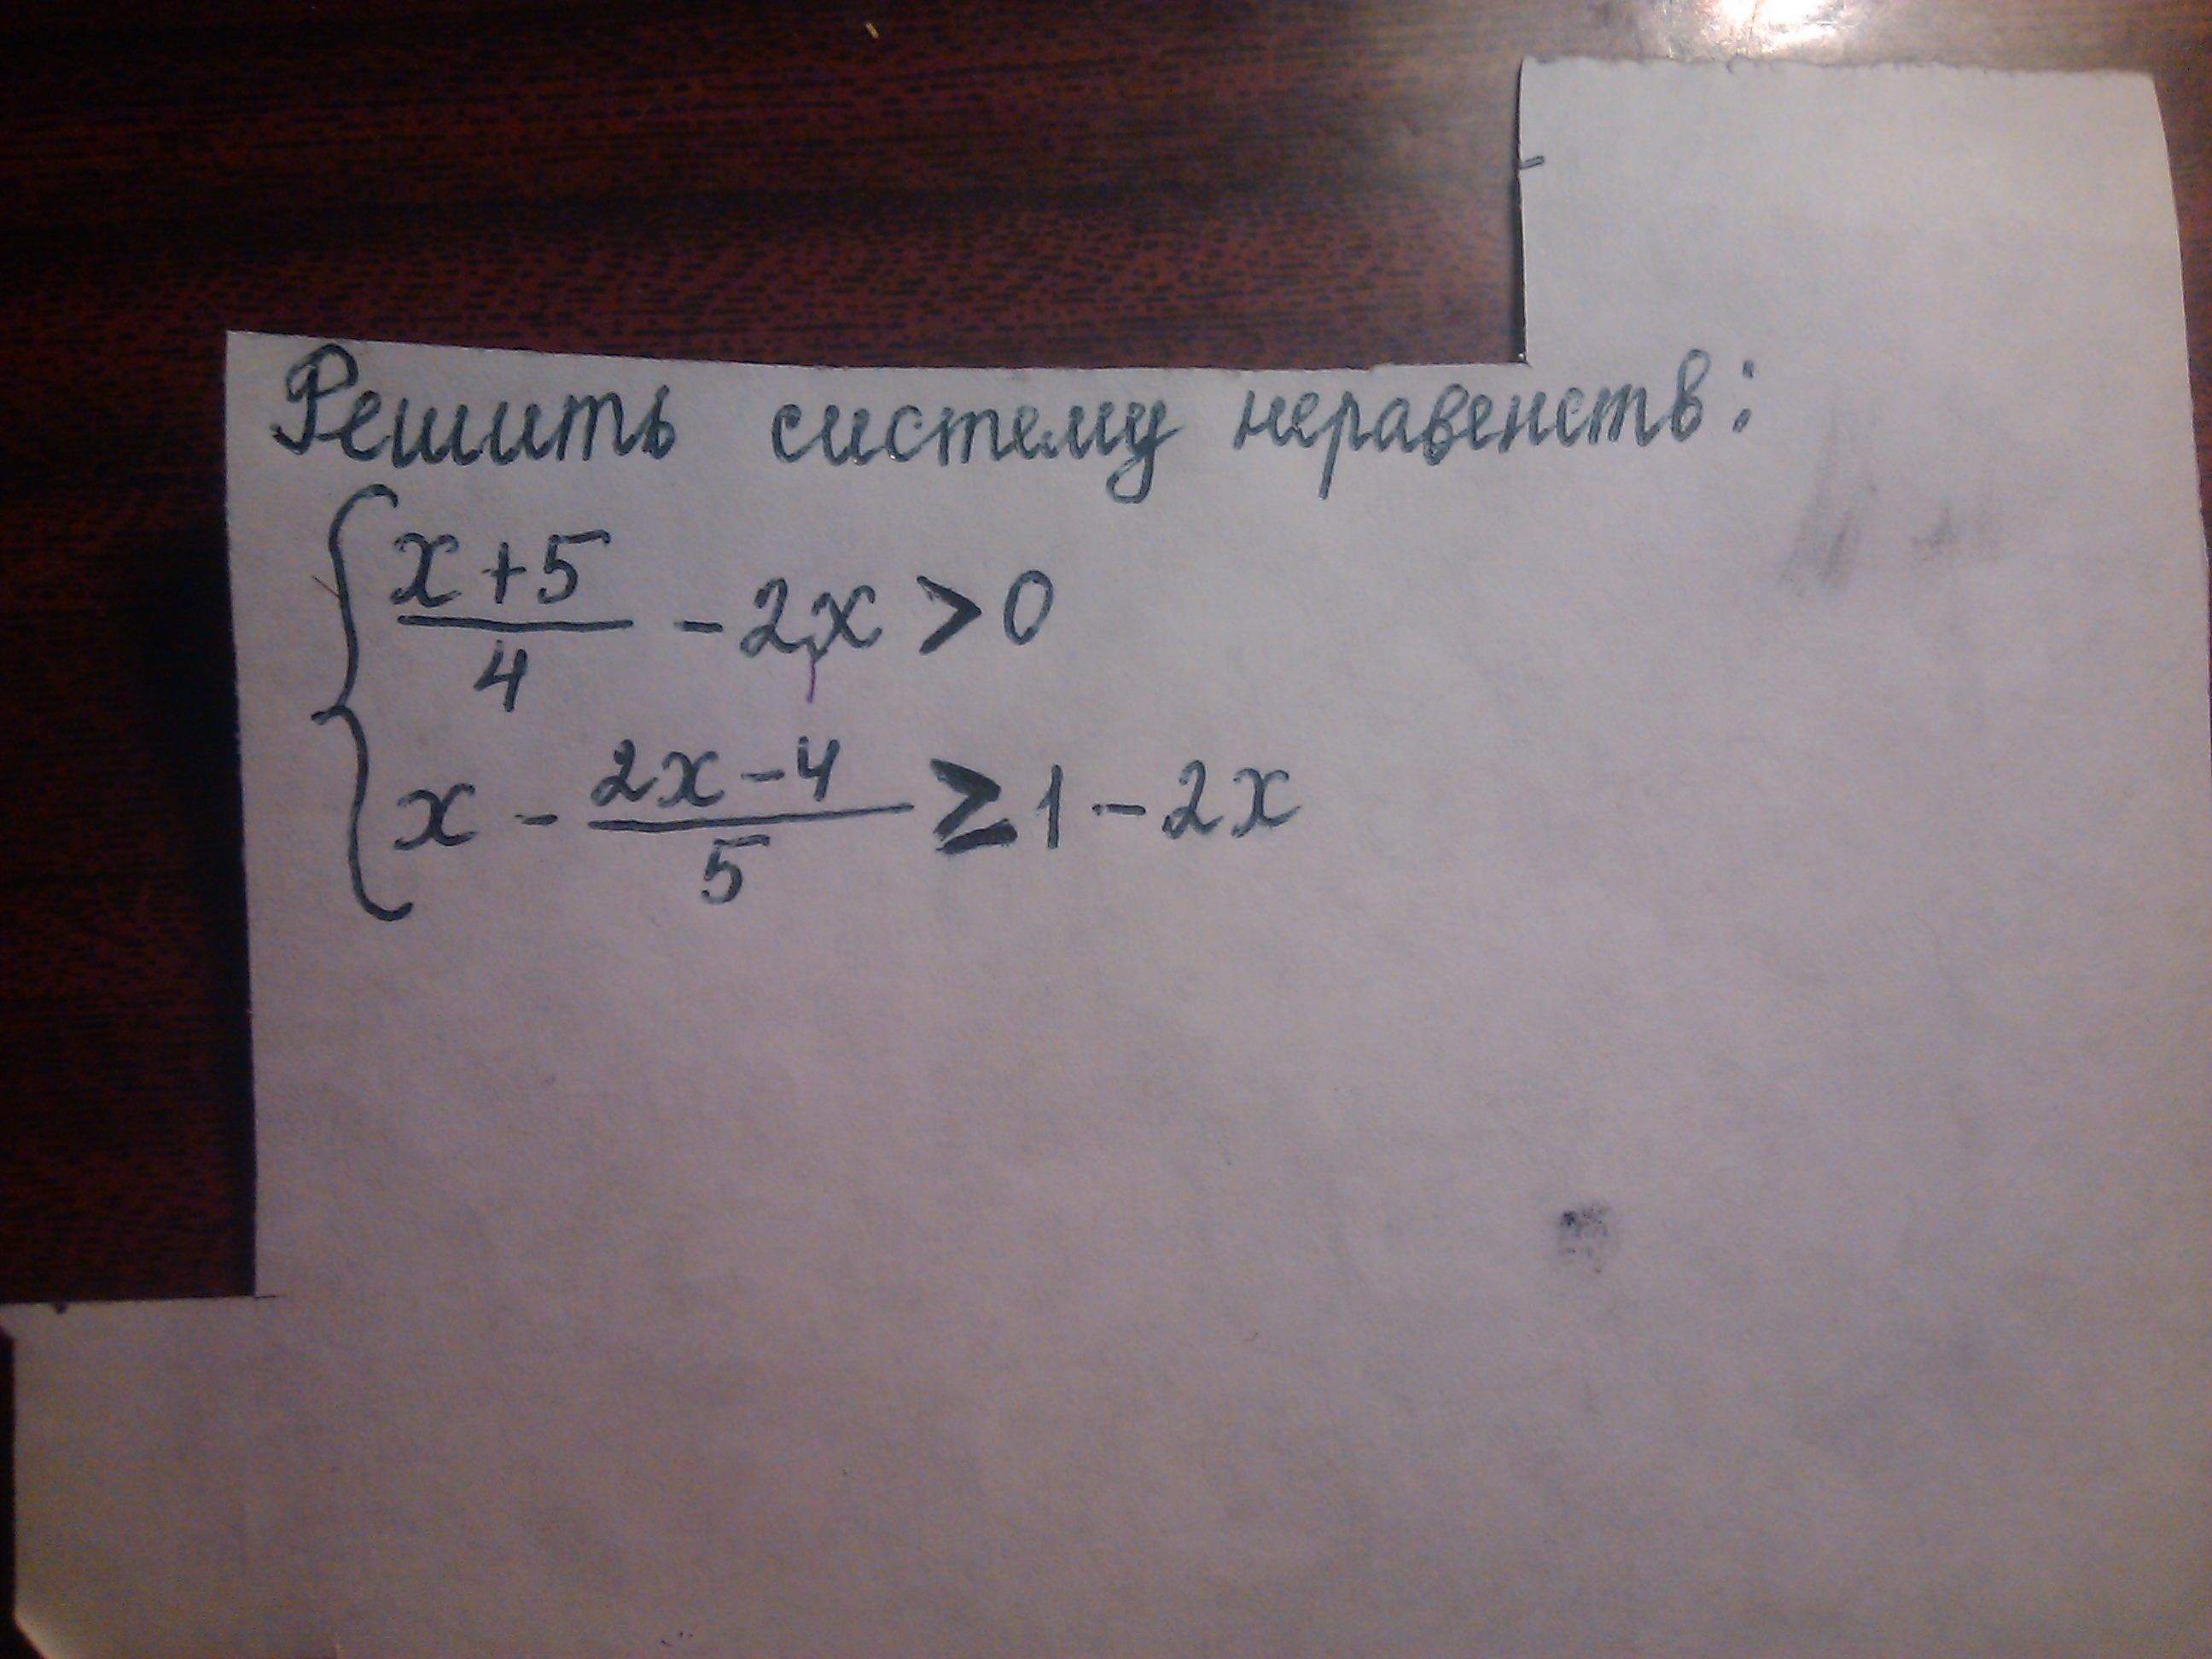 Решить систему неравенств:
x+5/4 - 2x > 0
x - 2x-4/5 ≥ 1 - 2x